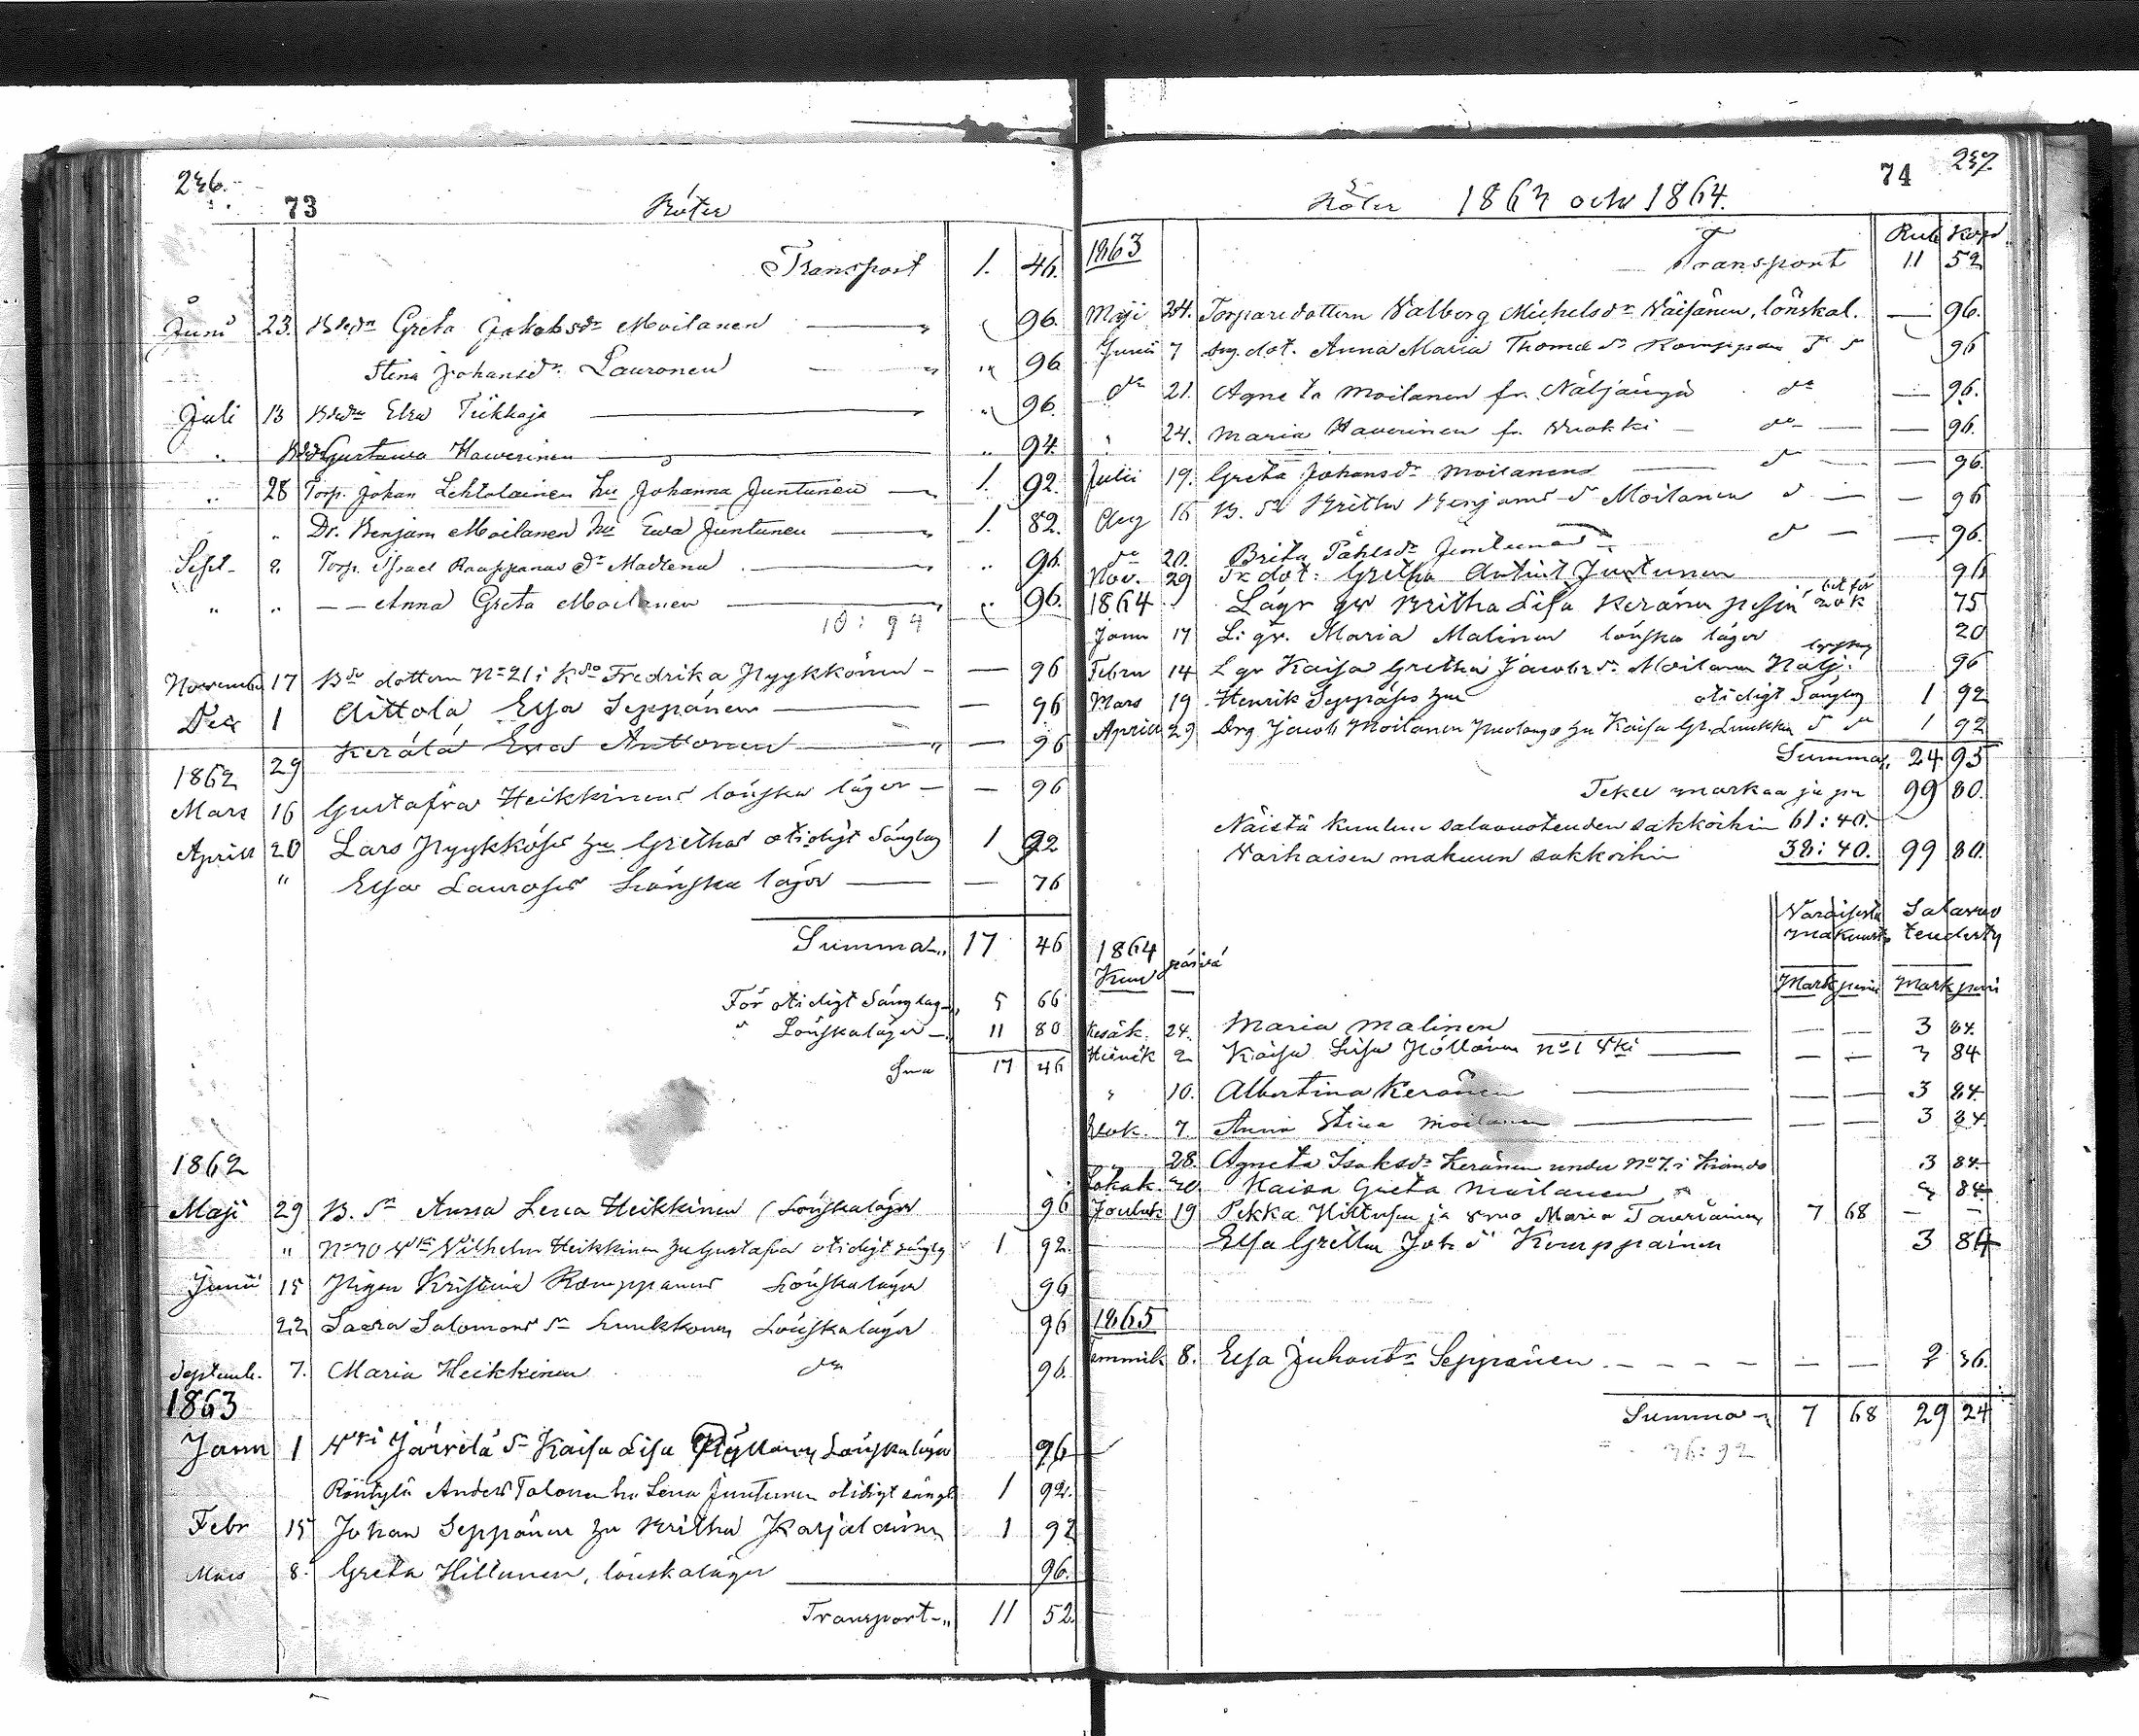 246.
73
Böter
Transport 1. 46.
Juni 23. Bdedr Greta Jakobsdr Moilanen — " 96.
Stina Johansdr Lauronen — " 96
Juli 13 Elsa Tiikkaja — " 96.
" Gustawa Hawerinen — " 94.
" 28 Torp. Johan Lehtolainen hu Johanna Juntunen — 1. 92.
" Dr. Benjam Moilanen hu Ewa Juntunen — 1. 82.
Sept. 2. Torp. Israel Raappanas dr Madlena — " 96.
" " — — Anna Greta Moilanen — " 96.
10: 94
Novemb 17 Bde dottern No 21 i Kdo Fredrika Nyykkönen — — 96
Dec 1 Aittola Elsa Seppänen — — 96
29 Kerälä Eva Anttonen — " — 96
1862
Mars 16 Gustafva Heikkinens lönska läger — — 96
Aprill 20 Lars Nyykkös hu Grethas otidigt Sänglag 1 92
" Elsa Lauros Lönska läger — — 76
Summa 17 46
För otidigt Sänglag 5 66
" Lönskaläger 11 80
Sma 17 46
1862
Maji 29 B. dr Anna Lena Heikkinen Lönskaläger 96
" No 70 Wilhelm Heikkinen hu Gustafva otidigt sänglg 1 92.
Junii 15 Pigan Kristina Komppanus Lönskaläger 96
22 Saara Salomons dr Luukkonen Lönskaläger 96
Septemb. 7. Maria Heikkinen do 96.
1863
Janu 1 Järvelä dr Kaisa Lisa Lönskaläger 96
Räntylä Anders Talonen hu Lena Juntunen otidigt sängl. 1 92.
Febr 15 Johan Seppänen hu Britha Karjalainen 1 92
Mars 8. Greta Hiltunen, lönskaläger — 96.
Transport " 11 52.
247.
74
Böter 1863 och 1864.
Rub Kop.
1863 Transport 11 52
Maji 24. Torparedottern Valborg Michelsdr Väisänen, lönskal. — 96.
Junii 7 dot. Anna Maria Thomæ dr Komppan 96
do 21. Agneta Moilanen fr. Näljänga do — 96.
" 24. Maria Haverinen fr. Vuokki — do — — 96.
Julii 19. Greta Johansdr Moilanens — d — — 96
Aug 16 B. dr Britha Benjamsdr Moilanen d — — 96
do 20. Brita Påhlsdr Juntunen d — — 96.
Nov. 29 dot: Gretha Juntunen — 96
1864 Läg Britha Lisa Keränen 75
Janu 17 Maria Malinen lönska läger 20
Febru 14 Kaisa Gretha Jacobsdr Moilanen Nälj. 96
Mars 19 Henrik Seppäs hu otidigt Sänglag 1 92
Aprill 29 Jacob Moilanen Puolango hu Kaisa Gr. Luukkon d do 1 92
Summa " 24 95
Tekee markaa ja pn 99 80.
Näistä kuuluu salavuotenden sakkoihin 61:40.
Varhaisen makuun sakkoihin 38:40. 99 80.
Varaisesta makuust Salavuo tendesta
1864
Kuu päivä Mark peni Mark peni
Kesäk. 24. Maria Malinen — — — 3 84.
Heinäk 2 Kaisa Liisa No 1 — — — 3 84
" 10. Albertina Keränen — — — 3 84.
Elok. 7. Anna Stina Moilanen — — — 3 84
28. Agneta Isaksdr Keränen under No 7. i Kiando 3 84
Lokak. 30. Kaisa Greta Moilanen 3 84
Jouluk 19 Pekka Hiltusen ja vmo Maria Tauriainen 7 68 — —
Elsa Gretha Joh. dr Komppainen 3 84
1865
Tammik 8. Elsa Juhansdr Seppänen. — — — — — — 2 36.
Summa 7 68 29 24
36:92